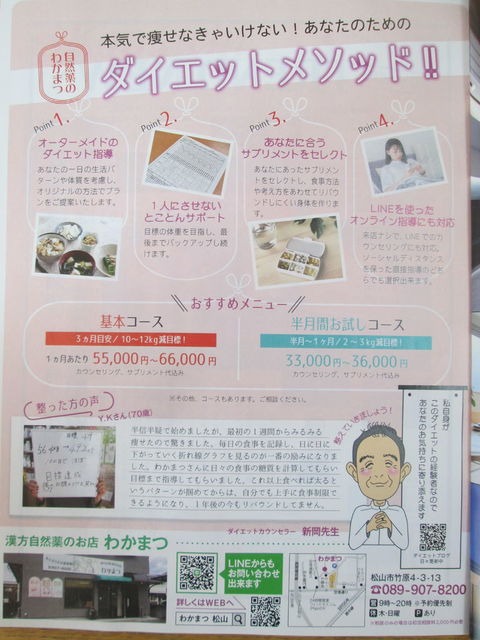 本気で痩せなきゃいけない！あなたのための
自然薬の
わかまつ
ダイエットメソッド!!
Point 1.
オーダーメイドの
ダイエット指導
あなたの一日の生活パ
ターンや体質を考慮し、
オリジナルの方法でプラ
ンをご提案いたします。
Point 2.
1人にさせない
とことんサポート
目標の体重を目指し、最
後までバックアップし続
けます。
Point 3.
あなたに合う
サプリメントをセレクト
あなたにあったサプリメン
トをセレクトし、食事方法
や考え方をあわせてリバウ
ンドしにくい身体を作りま
す。
Point 4.
LINEを使った
オンライン指導にも対応
来店ナシで、LINEでのカ
ウンセリングにも対応。
ソーシャルディスタンス
を保った直接指導のどち
らでも選択出来ます。
おすすめメニュー
基本コース
3ヵ月目安/10〜12kg減目標！
1ヵ月あたり 55,000円〜66,000円
カウンセリング、サプリメント代込み
半月間お試しコース
半月〜1ヶ月/2〜3kg減目標！
33,000円〜36,000円
カウンセリング、サプリメント代込み
※その他、コースもあります。ご相談ください。
整った方の声
Y.Kさん(70歳)
半信半疑で始めましたが、最初の1週間からみるみる
痩せたので驚きました。毎日の食事を記録し、日に日に
下がっていく折れ線グラフを見るのが一番の励みになりま
した。わかまつさんに日々の食事の糖質を計算してもらい
目標まで指導してもらいました。これ以上食べれば太ると
いうパターンが掴めてからは、自分でも上手に食事制限で
きるようになり、1年後の今もリバウンドしてません。
整えていきましょう！
私自身が
このダイエットの経験者なので
あなたのお気持ちに寄り添えます
ダイエットブログ
日々更新中
ダイエットカウンセラー 新岡先生
漢方自然薬のお店 わかまつ
LINEからも
お問い合わせ
出来ます
詳しくはWEBへ
わかまつ 松山
わかまつ
松山市竹原4-3-13
089-907-8200
営 9時〜20時 ※予約優先制
休 木・日曜 P あり